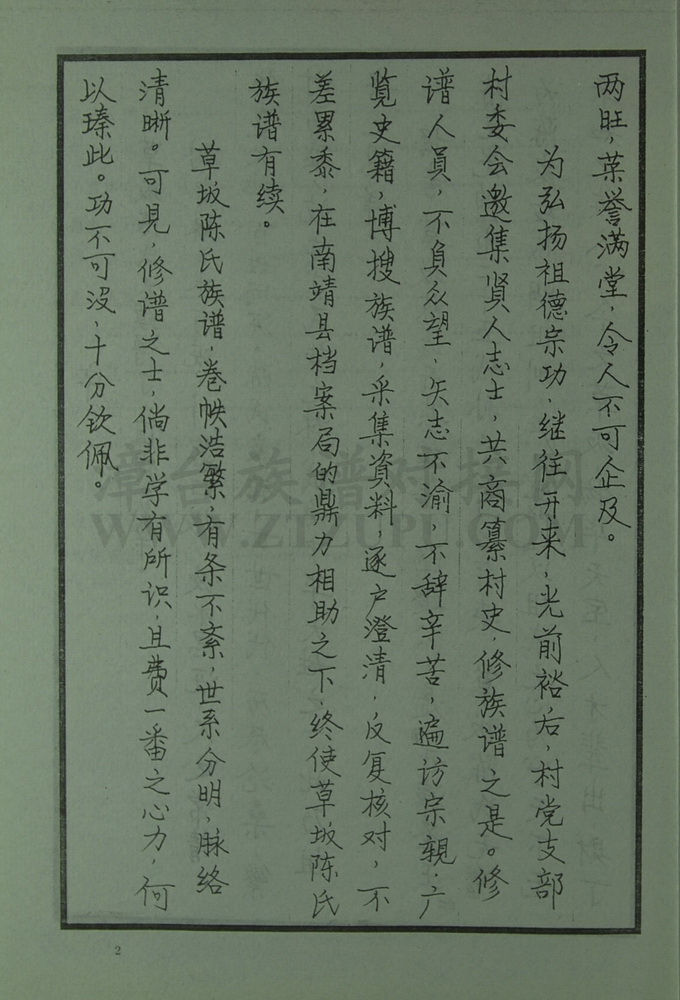 两旺，荣誉满堂，令人不可企及。
为弘扬祖德宗功，继往开来，光前裕后，村党支部
村委会邀集贤人志士，共商纂村史，修族谱之是。修
谱人員，不負众望，矢志不渝，不辞辛苦，遍访宗親，广
览史籍，博搜族谱，采集資料，逐户澄清，反复核对，不
差累黍，在南靖县档案局的鼎力相助之下，终使草坂陈氏
族谱有续。
草坂陈氏族谱，卷帙浩繁，有条不紊，世系分明，脉络
清晰。可見，修谱之士，倘非学有所识，且费一番之心力，何
以臻此。功不可沒，十分钦佩。
2
漳台族谱对接网
WWW.ZTZUPU.COM